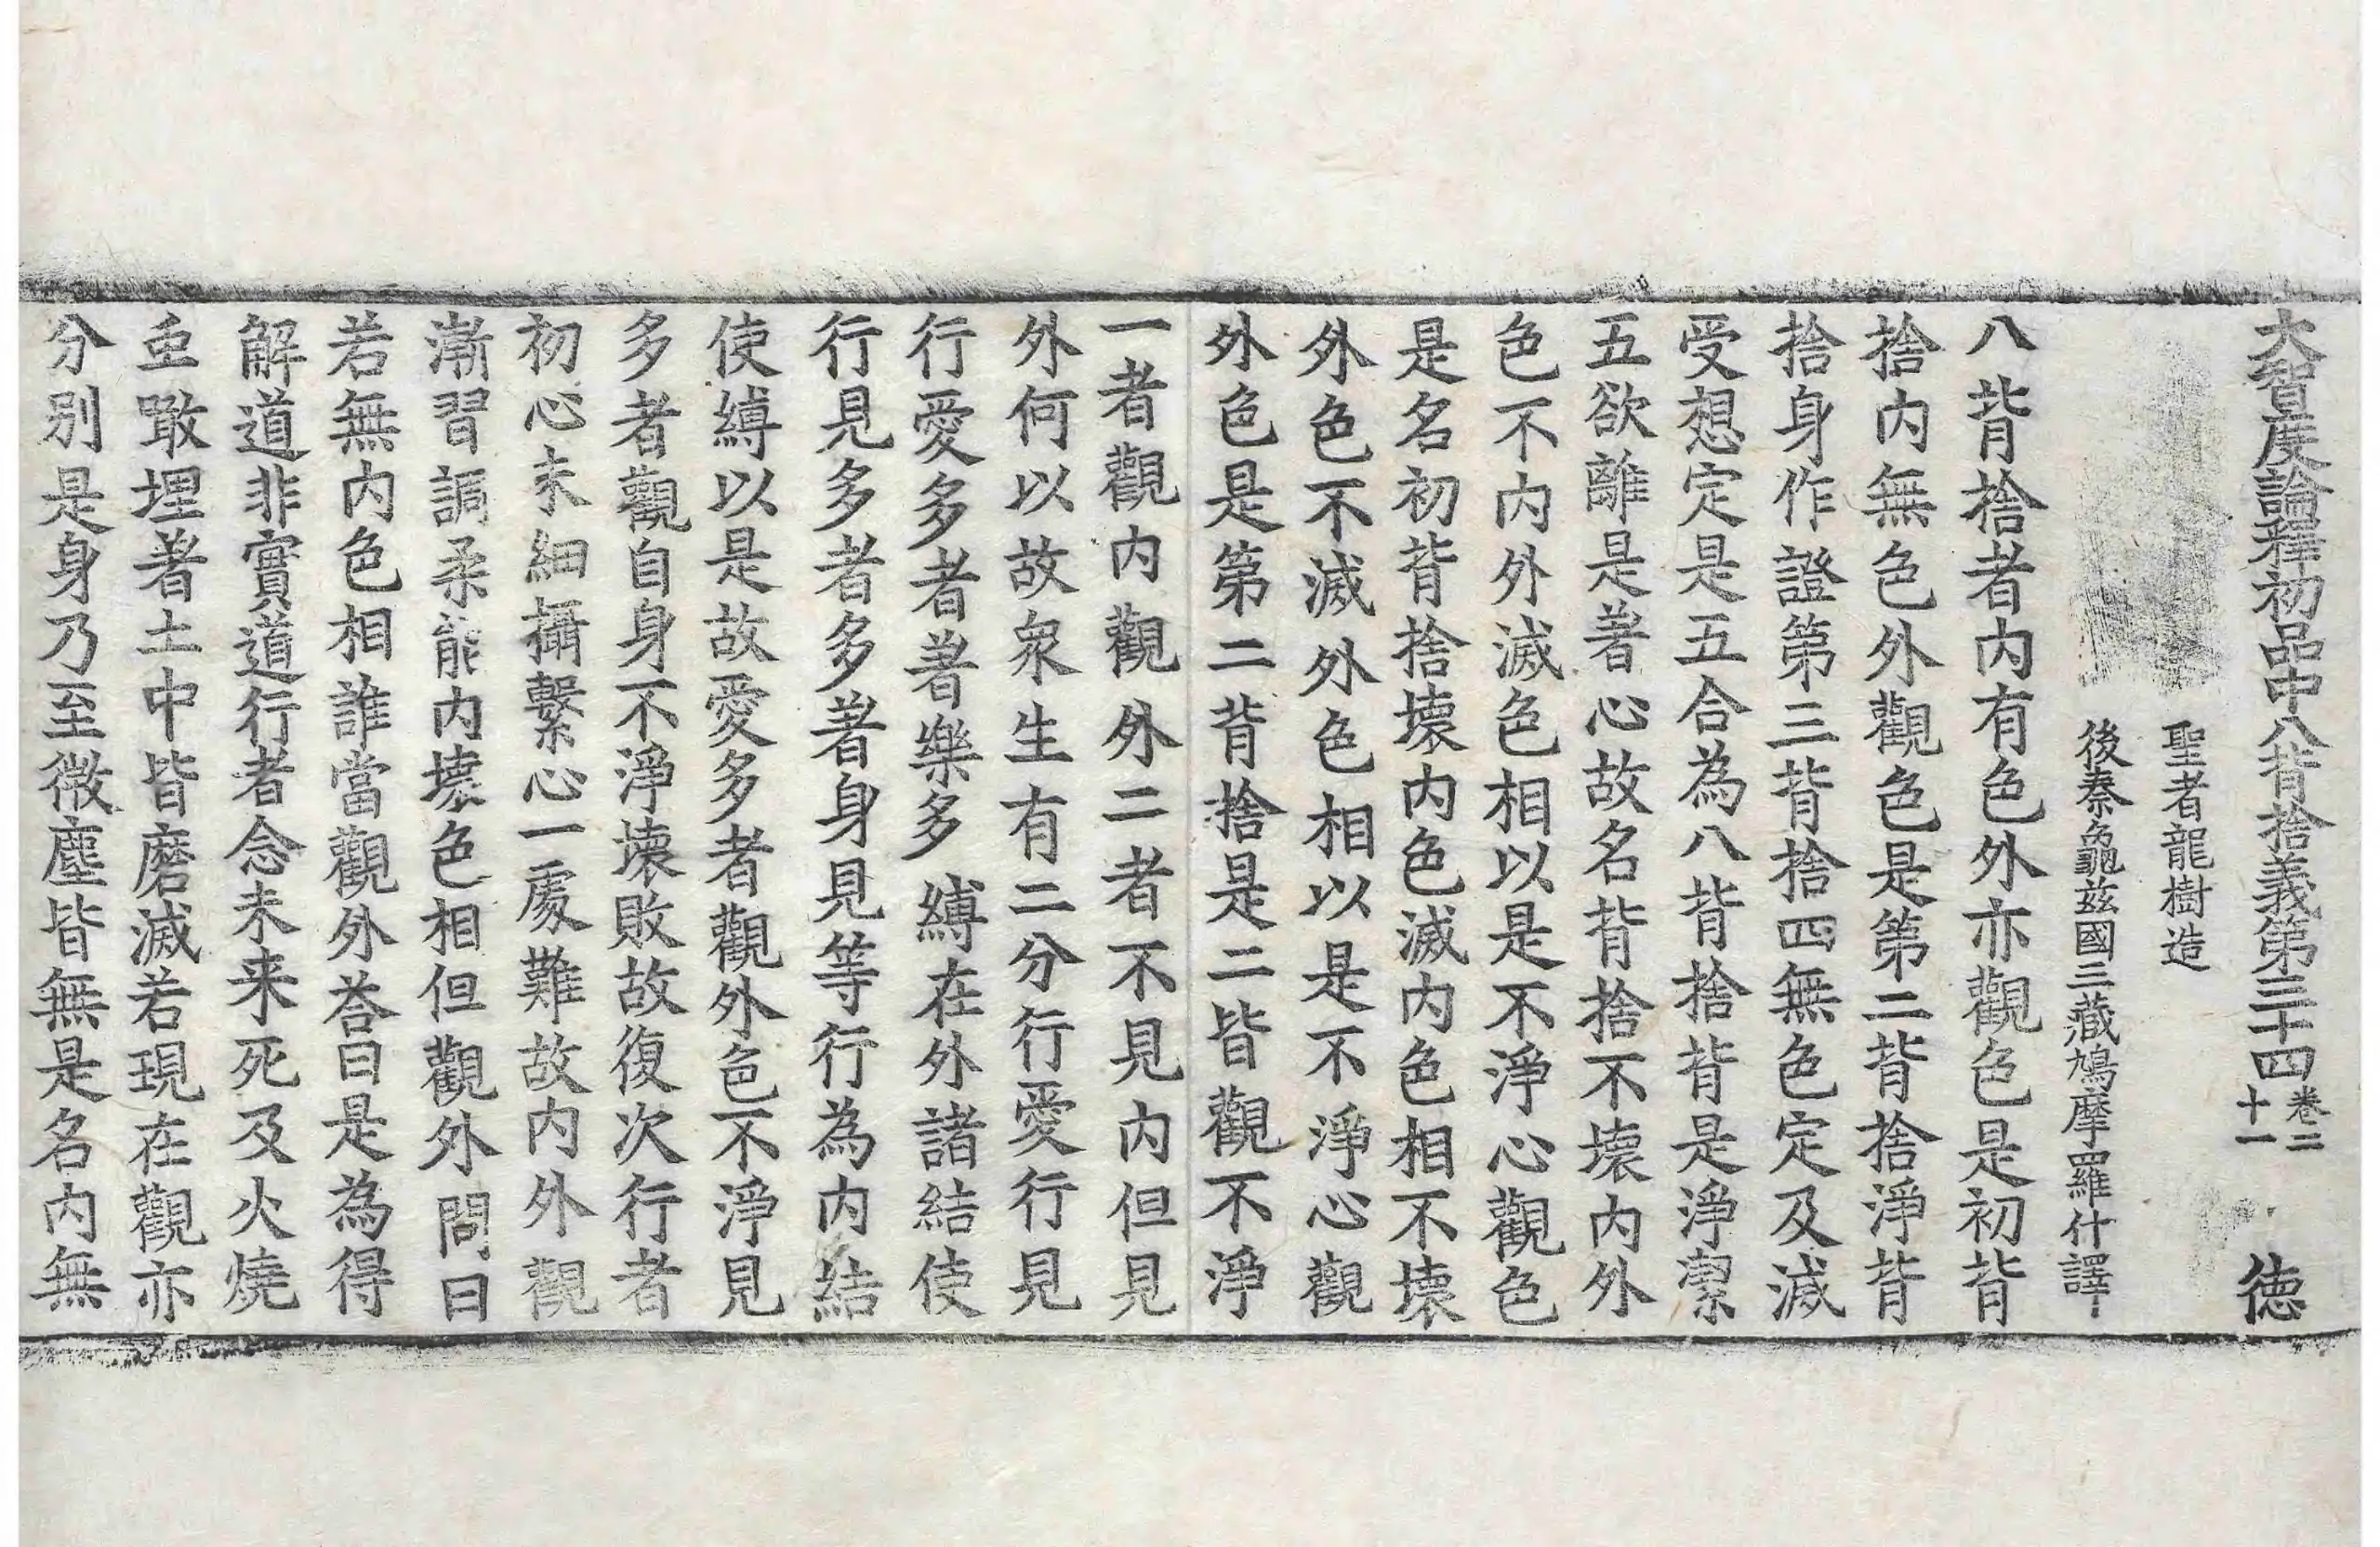 大智度論釋初品中八背捨義第三十四 卷二十一 德
聖者龍樹造
後秦龜茲國三藏鳩摩羅什譯
八背捨者內有色外亦觀色是初背
捨內無色外觀色是第二背捨淨背
捨身作證第三背捨四無色定及滅
受想定是五合為八背捨背是淨潔
五欲離是著心故名背捨不壞內外
色不內外滅色相以是不淨心觀色
是名初背捨壞內色滅內色相不壞
外色不滅外色相以是不淨心觀
外色是第二背捨是二皆觀不淨
一者觀內觀外二者不見內但見
外何以故衆生有二分行愛行見
行愛多者著樂多縛在外諸結使
行見多者多著身見等行為內結
使縛以是故愛多者觀外色不淨見
多者觀自身不淨壞敗故復次行者
初心未細攝繫心一處難故內外觀
漸習調柔能內壞色相但觀外問曰
若無內色相誰當觀外荅曰是為得
解道非實道行者念未来死及火燒
䖝噉埋著土中皆磨滅若現在觀亦
分別是身乃至微塵皆無是名內無